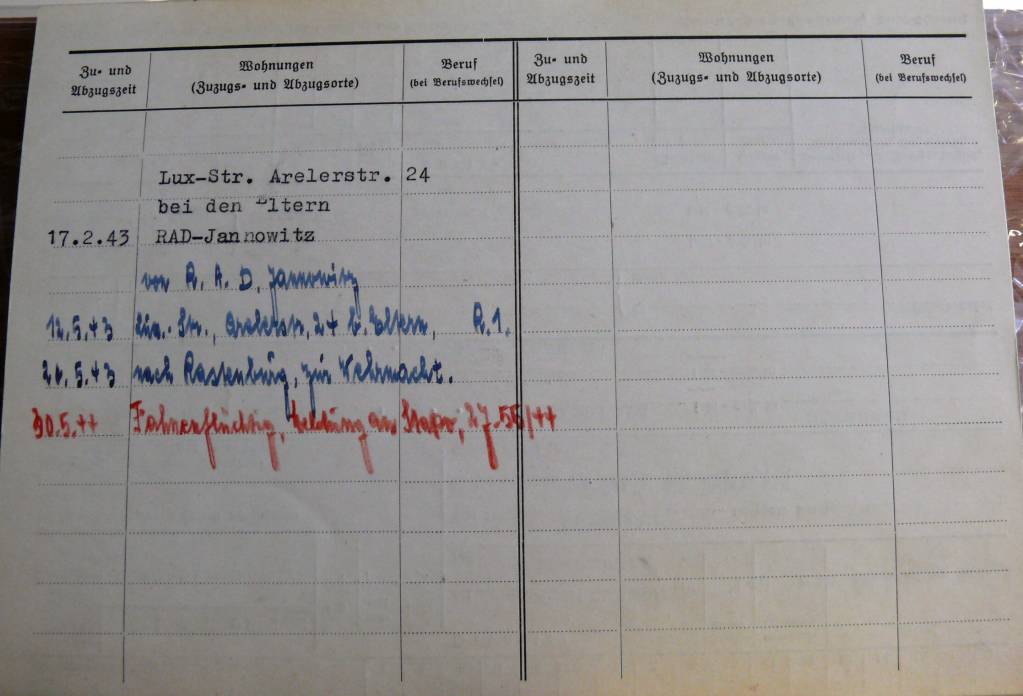 Zu- und
Abzugszeit
Wohnungen
(Zuzugs- und Abzugsorte)
Beruf
(bei Berufswechsel)
Zu- und
Abzugszeit
Wohnungen
(Zuzugs- und Abzugsorte)
Beruf
(bei Berufswechsel)
Lux-Str. Arelerstr. 24
bei den Eltern
17.2.43 RAD-Jannowitz
von R. A. D. Jannowitz
12.5.43 Lux.-Str., Arelerstr. 24 b. Eltern, R.1.
26.5.43 nach Rastenburg, zur Wehrmacht.
30.5.44 Fahnenflüchtig, Meldung an Stapo, 27-55/44